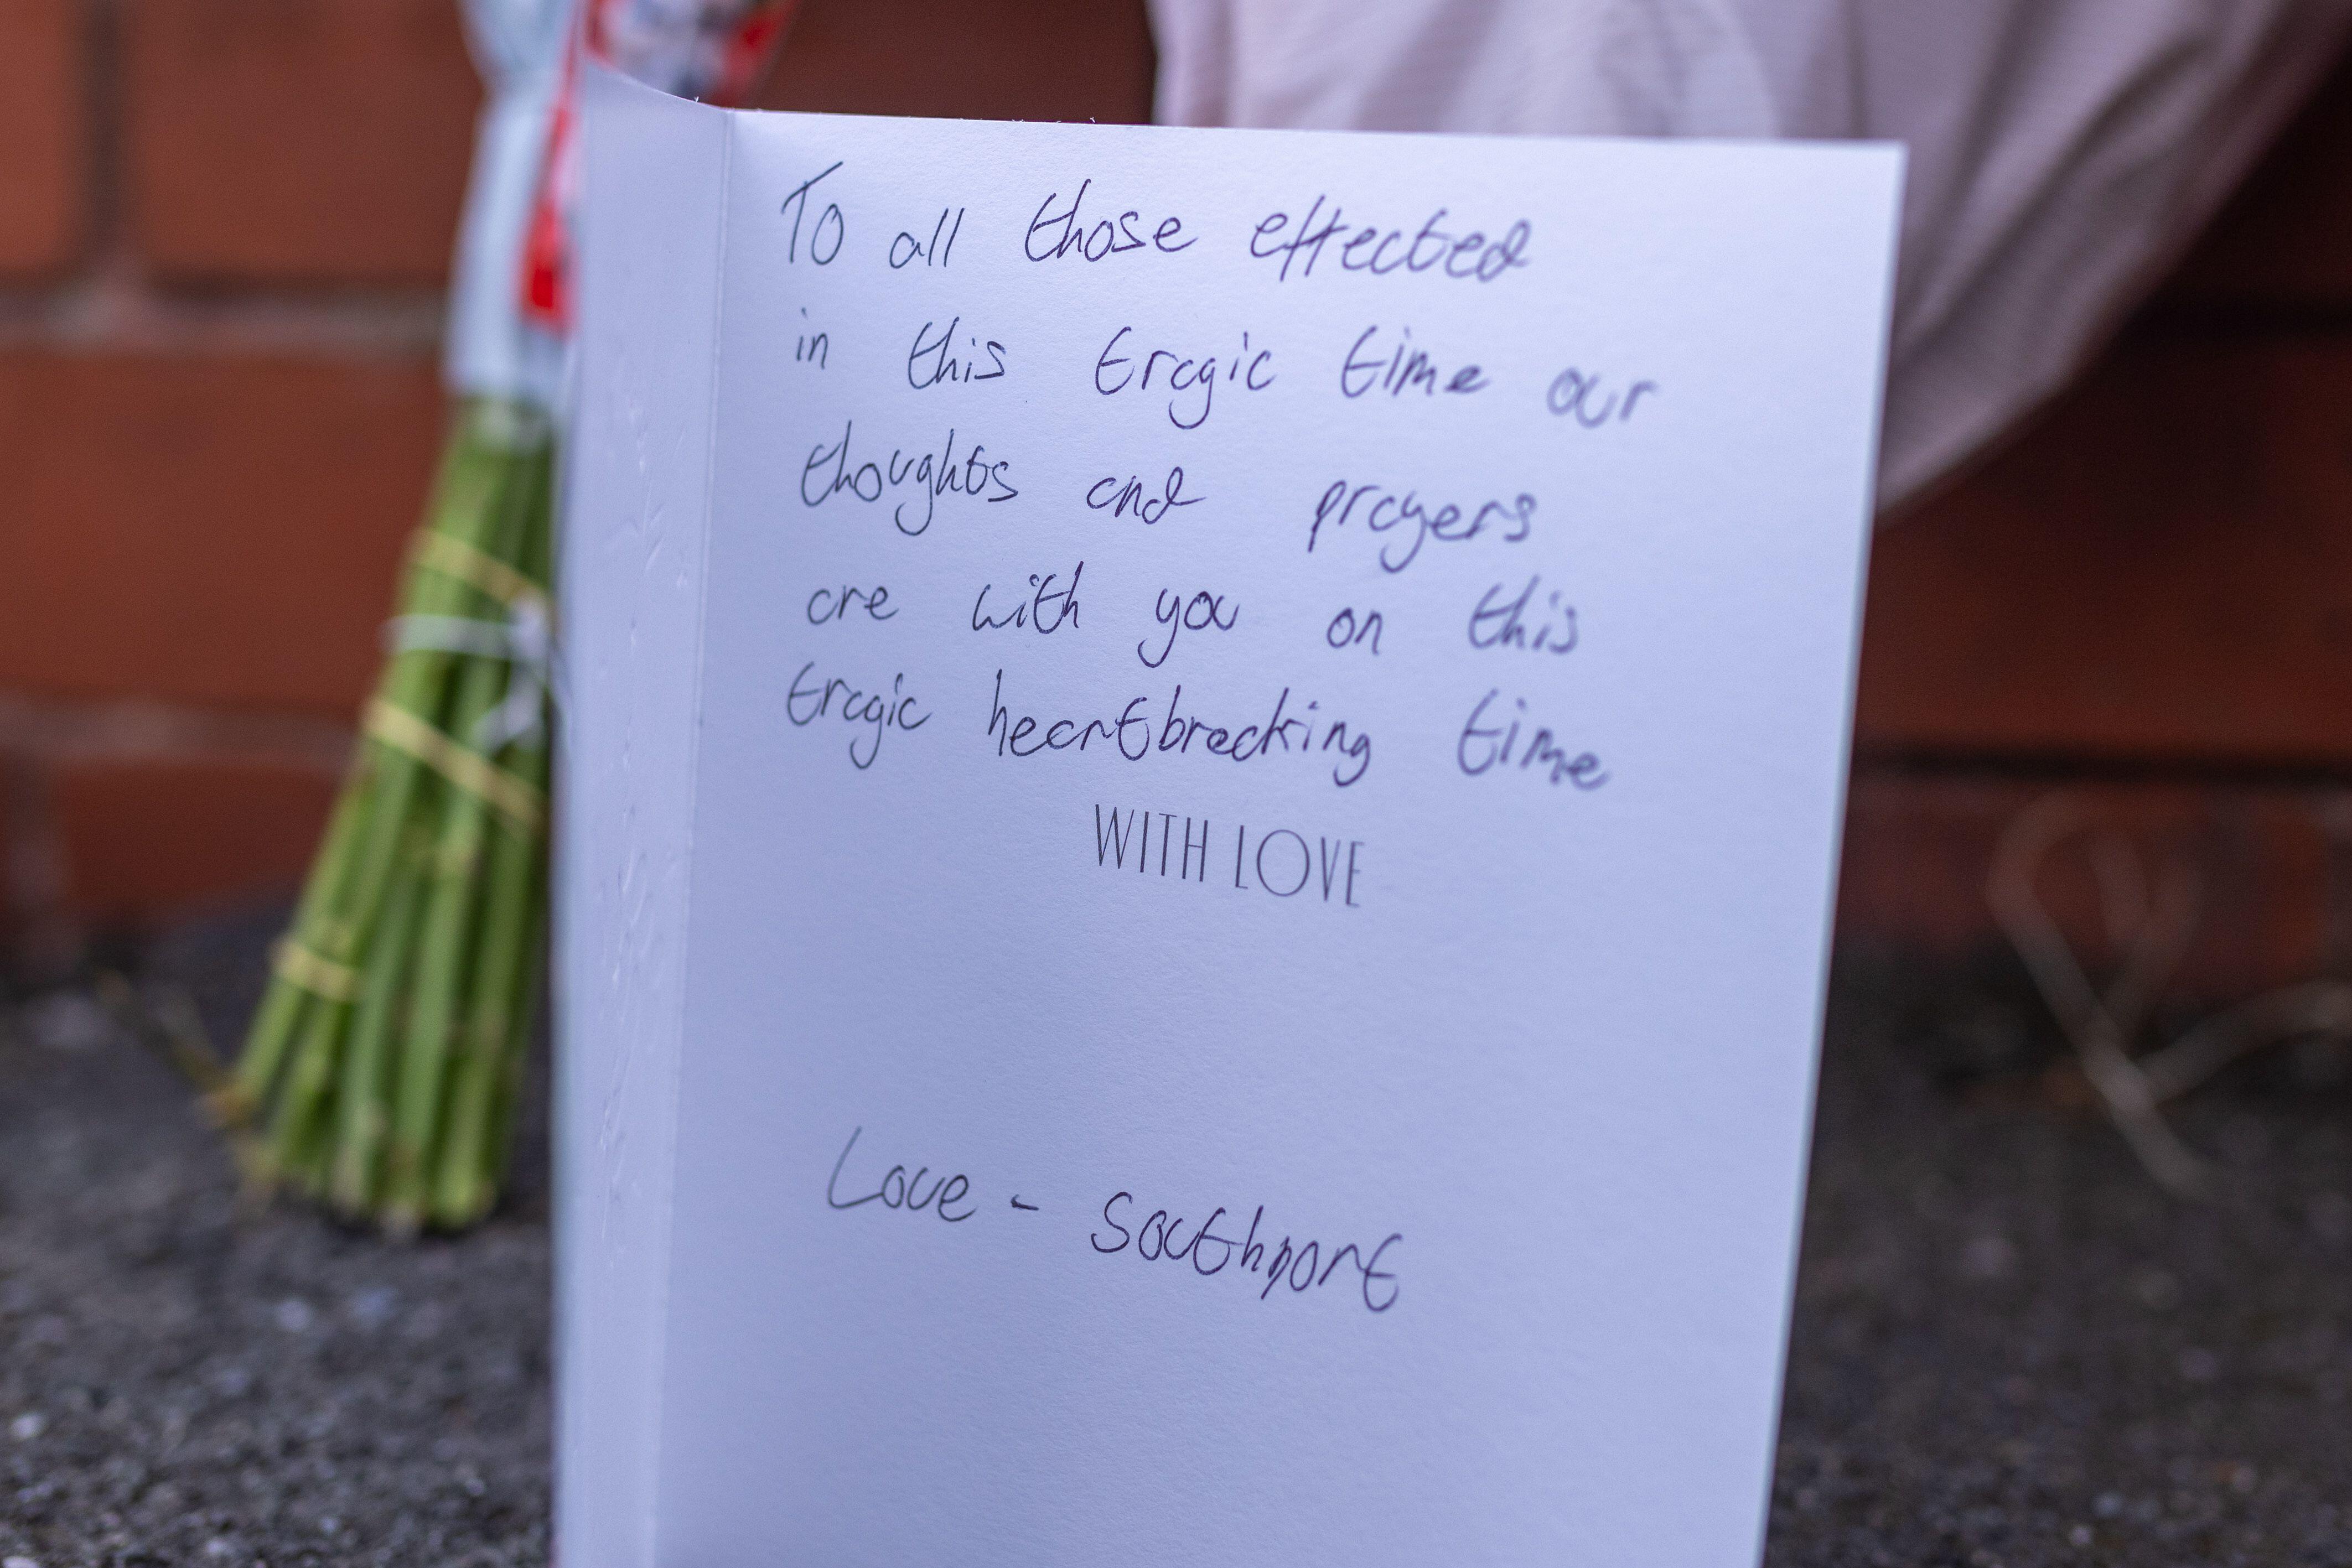 To all those effected
in this tragic time our
thoughts and prayers
are with you on this
tragic heartbreaking time
WITH LOVE
Love - Southport